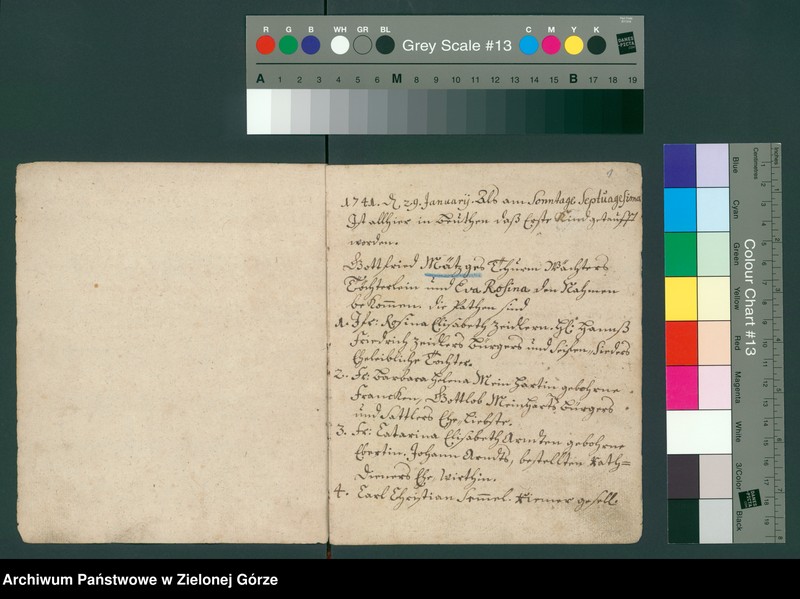 R G B WH GR BL Grey Scale #13 C M Y K
A 1 2 3 4 5 6 M 8 9 10 11 12 13 14 15 B 17 18 19
1741. d. 29. January. Als am Sonntage Septuagesima
Ist allhier in Beuthen daß Erste Kind getaufft
worden.
Gottfried Mätzges Thurm Wächters
Töchterlein und Eva Rosina den Nahmen
bekommen. die Pathen sind
1. Jfr: Rosina Elisabeth Zeidlern. Hl: Hannß
Friedrich Zeidlers Bürgers und Seifen Sieders
Eheleibliche Tochter.
2. Fr: Barbara Helena Meinhartin gebohrne
Francken, Gottlob Meinharts Bürgers
und Sattlers Ehe Liebste.
3. Fr: Catarina Elisabeth Arndten gebohrne
Ebertin. Johann Arndts, bestellten Rath=
Dieners Ehe Wirthin.
4. Carl Christian Semmel. Riemer gesell
Colour Chart #13
Blue
Cyan
Green
Yellow
Red
Magenta
White
3/Color
Black
Centimetres
Inches
Archiwum Państwowe w Zielonej Górze